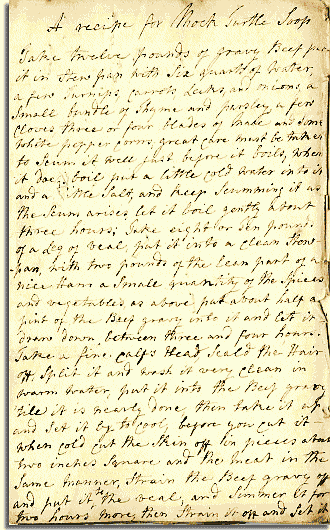 A recipe for Mock Turtle Soop
Take twelve pounds of gravy Beef put
it in Stew pan with Six quarts of Water,
a few Turnips, carrots, Leeks, and onions, a
Small bundle of Thyme and parsley, a few
Cloves three or four blades of Make and Some
White pepper corns, great care must be taken
to Scum it well just before it boils, when
it does boil put a little cold water in to it
and a little Salt, and keep Scumming it as
the Scum arises let it boil gently about
three hours; Take eight or ten pounds
of a Leg of Veal, put it into a clean Stew
pan, with two pounds of the Lean part of a
nice ham a Small quantity of the Spices
and vegetables as above put about half a
pint of the Beef gravy into it and let it
draw down, between three and four hours.
Take a fine Calfs Head, Scald the Hair
off, Split it and wash it very clean in
warm water, put it into the Beef gravy
till it is nearly done then take it up
and Set it by to cool, before you cut it
when cold cut the Skin off in pieces about
two inches Square and the meat in the
Same manner, Strain the Beef gravy off
and put it to the veal, and Simmer it for
two hours more, then Strain it off and Set it